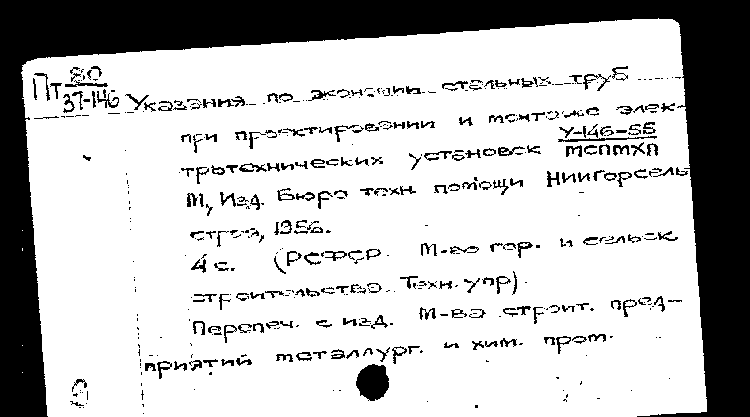 Пт 80
37-146
Указания по экономии стальных труб
при проектировании и монтаже элек-
тротехнических установок У-146-55
МСПМХП
М, Изд. Бюро техн. помощи НИИГорсель
строя, 1956.
4 с. (РСФСР. М-во гор. и сельск.
строительства. Техн. упр).
Перепеч. с изд. М-ва строит. пред-
приятий металлург. и хим. пром.